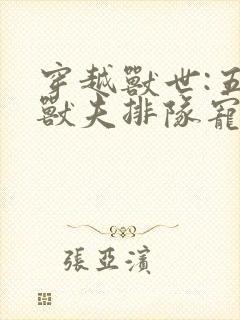 穿越獸世:五
獸夫排隊寵
張亞濱